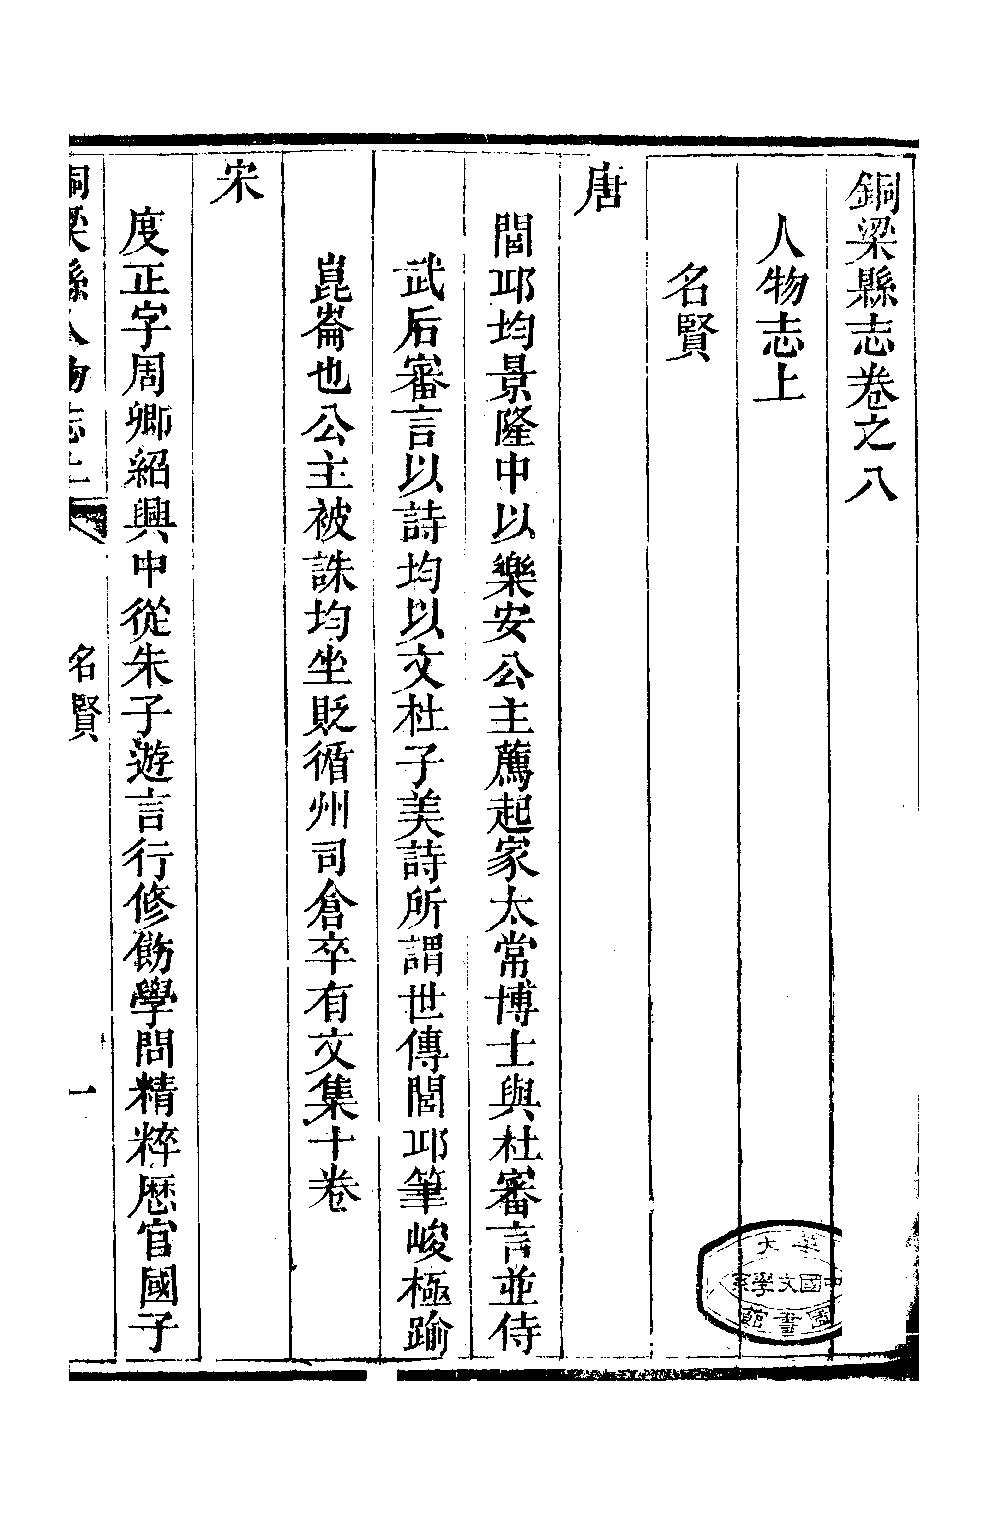 銅梁縣志卷之八
人物志上
名賢
唐
閭邱均景隆中以樂安公主薦起家太常博士與杜審言並侍
武后審言以詩均以文杜子美詩所謂世傳閭邱筆峻極踰
崑崙也公主被誅均坐貶循州司倉卒有文集十卷
宋
度正字周卿紹興中從朱子遊言行修飭學問精粹歷官國子
銅梁縣人物志上 名賢 一
大學
中國文學系
圖書館